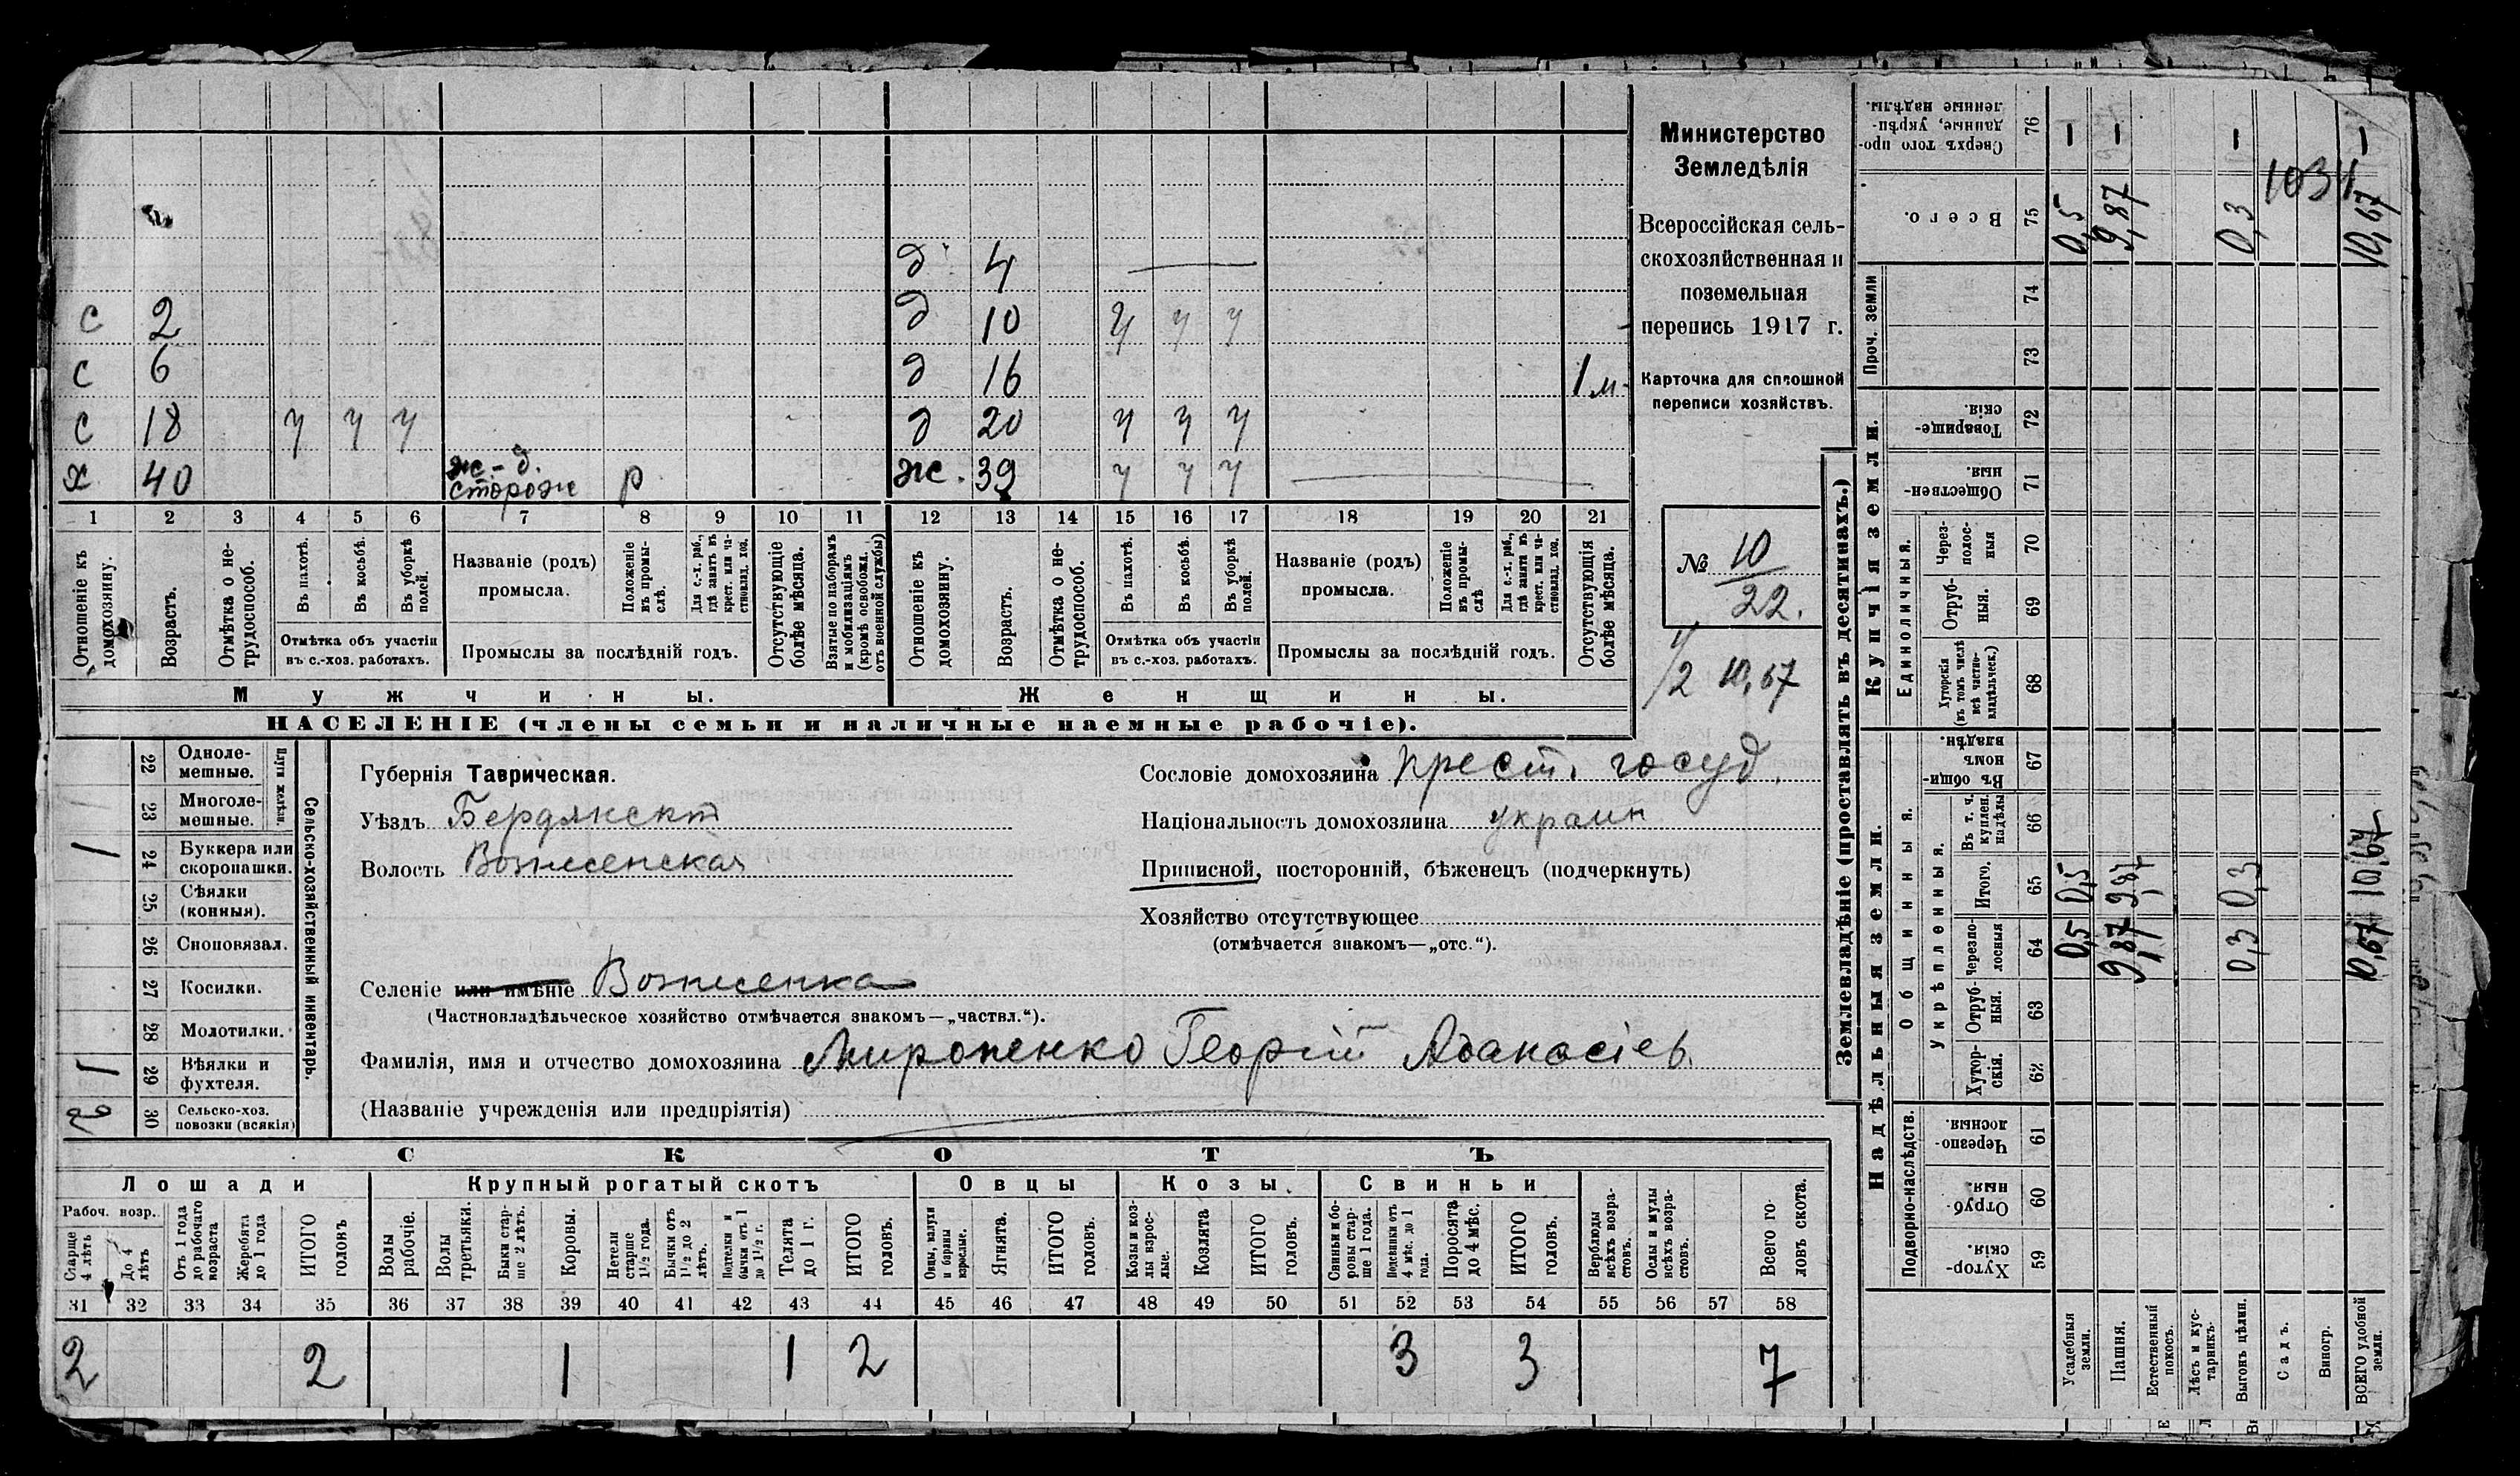 с 2
с 6
с 18 ч ч ч
х 40 ж-д. сторож р
д 4
д 10 ч ч ч
д 16 1 м
д 20 ч ч ч
ж. 39 ч ч ч
1 2 3 4 5 6 7 8 9 10 11 12 13 14 15 16 17 18 19 20 21
Отношеніе къ домохозяину.
Возрастъ.
Отмѣтка о нетрудоспособ.
Въ пахотѣ.
Въ косьбѣ.
Въ уборкѣ полей.
Отмѣтка объ участіи
въ с.-хоз. работахъ.
Названіе (родъ)
промысла.
Положеніе въ промыслѣ.
Для с.-х. раб., гдѣ занятъ въ крест. или частновлад. хоз.
Промыслы за послѣдній годъ.
Отсутствующіе болѣе мѣсяца.
Взятые по наборамъ и мобилизаціямъ (кромѣ освобожд. отъ военной службы)
Отношеніе къ домохозяину.
Возрастъ.
Отмѣтка о нетрудоспособ.
Въ пахотѣ.
Въ косьбѣ.
Въ уборкѣ полей.
Отмѣтка объ участіи
въ с.-хоз. работахъ.
Названіе (родъ)
промысла.
Положеніе въ промыслѣ.
Для с.-х. раб., гдѣ занята въ крест. или частновлад. хоз.
Промыслы за послѣдній годъ.
Отсутствующія болѣе мѣсяца.
Мужчины.
Женщины.
НАСЕЛЕНІЕ (члены семьи и наличные наемные рабочіе).
Министерство
Земледѣлія
Всероссійская сель-
скохозяйственная и
поземельная
перепись 1917 г.
Карточка для сплошной
переписи хозяйствъ.
№ 10
22.
1/2 10,67
22 Одноле-
мешные.
23 Многоле-
мешные.
Плуги желѣзн.
1 24 Буккера или
скоропашки.
25 Сѣялки
(конныя).
26 Сноповязал.
27 Косилки.
28 Молотилки.
1 29 Вѣялки и
фухтеля.
2 30 Сельско-хоз.
повозки (всякія)
Сельско-хозяйственный инвентарь.
Губернія Таврическая.
Уѣздъ Бердянскій
Волость Вознесенская
Сословіе домохозяина крест. госуд.
Національность домохозяина украин
Приписной, посторонній, бѣженецъ (подчеркнуть)
Хозяйство отсутствующее
(отмѣчается знакомъ—„отс.“).
Селеніе или имѣніе Вознесенка
(Частновладѣльческое хозяйство отмѣчается знакомъ—„частвл.“).
Фамилія, имя и отчество домохозяина Мироненко Георгій Афанасіев.
(Названіе учрежденія или предпріятія)
СКОТЪ
Лошади Крупный рогатый скотъ Овцы Козы. Свиньи
Рабоч. возр.
Старше 4 лѣтъ
До 4 лѣтъ
Отъ 1 года до рабочаго возраста
Жеребята до 1 года
ИТОГО головъ
Волы рабочіе.
Волы третьяки.
Быки старше 2 лѣтъ.
Коровы.
Нетели старше 1½ года.
Бычки отъ 1½ до 2 лѣтъ.
Подтелки и бычки отъ 1 до 1½ г.
Телята до 1 г.
ИТОГО головъ.
Овцы, валухи и бараны взрослые.
Ягнята.
ИТОГО головъ.
Козы и козлы взрослые.
Козлята
ИТОГО головъ.
Свиньи и боровы старше 1 года.
Подсвинки отъ 4 мѣс. до 1 года.
Поросята до 4 мѣс.
ИТОГО головъ.
Верблюды всѣхъ возрастовъ.
Ослы и мулы всѣхъ возрастовъ.
Всего головъ скота.
31 32 33 34 35 36 37 38 39 40 41 42 43 44 45 46 47 48 49 50 51 52 53 54 55 56 57 58
2 2 1 1 2 3 3 7
Землевладѣніе (проставлять въ десятинахъ.)
Надѣльныя земли.
Купчія земли.
Проч. земли
Подворно-наслѣдств.
Общинныя.
Укрѣпленныя.
Единоличныя.
Хуторскія. 59
Отрубныя. 60
Черезполосныя. 61
Хуторскія. 62
Отрубныя. 63
Черезполосныя 64
Итого. 65
Въ т. ч. куплен. надѣлы 66
Въ общинномъ владѣн. 67
Хуторскія (въ томъ числѣ всѣ частновладѣльческ.) 68
Отрубныя. 69
Черезполосныя 70
Общественныя. 71
Товарищескія. 72
73
74
Всего. 75
Сверхъ того проданные, укрѣпленные надѣлы. 76
Усадебныя земли. 0,5 0,5 0,5 —
Пашня. 9,87 9,87 9,87 —
Естественный покосъ.
Лѣсъ и кустарникъ.
Выгонъ цѣлин. 0,3 0,3 0,3 —
Садъ.
Виногр.
ВСЕГО удобной земли. 10,67 10,67 10,67 —
1031